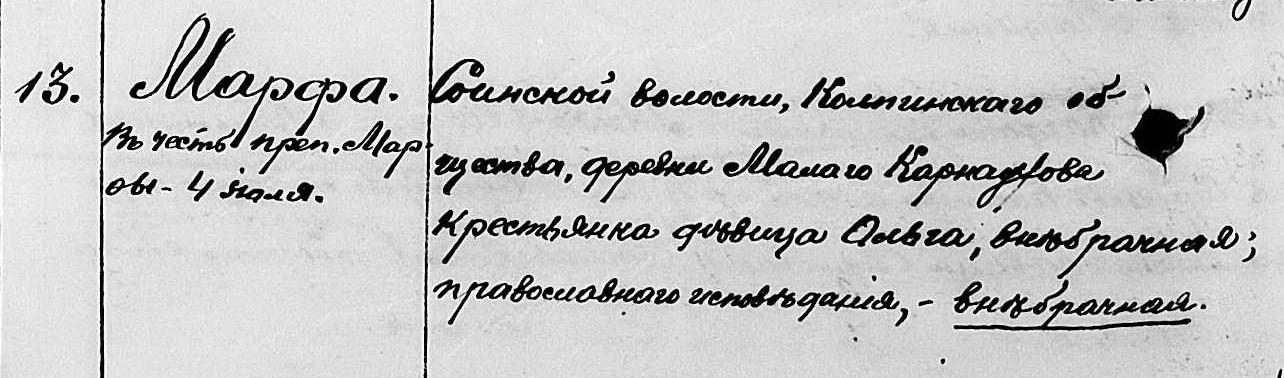 13. Марфа.
Въ честь преп. Мар-
ѳы - 4 іюля.
Соинской волости, Колпинскаго об-
щества, деревни Малаго Карнаухова
крестьянка дѣвица Ольга, внѣбрачная;
православнаго исповѣданія, - внѣбрачная.